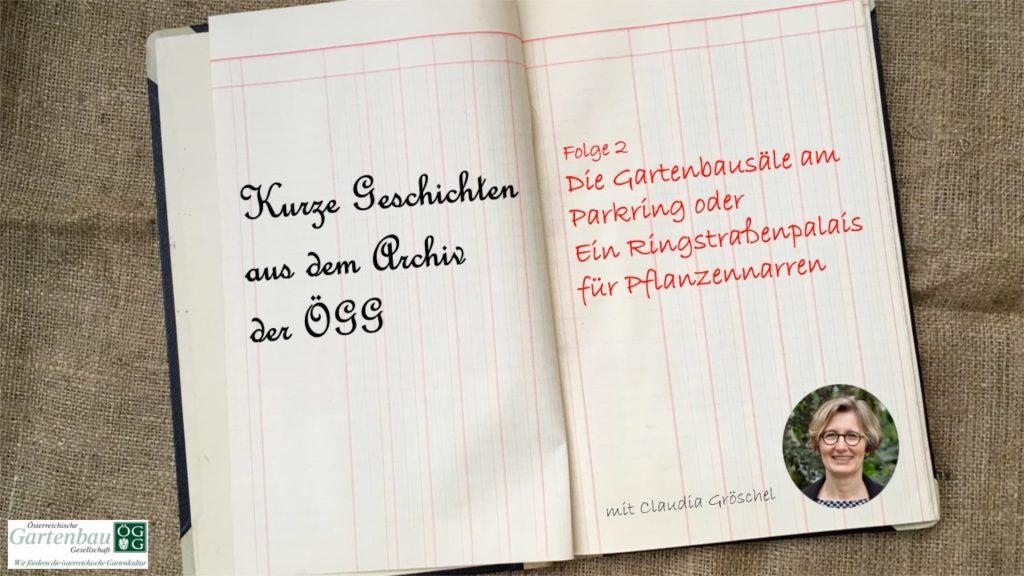 Kurze Geschichten
aus dem Archiv
der ÖGG
Folge 2
Die Gartenbausäle am
Parkring oder
Ein Ringstraßenpalais
für Pflanzennarren
mit Claudia Gröschel
Österreichische
Gartenbau
Gesellschaft
ÖGG
Wir fördern die österreichische Gartenkultur